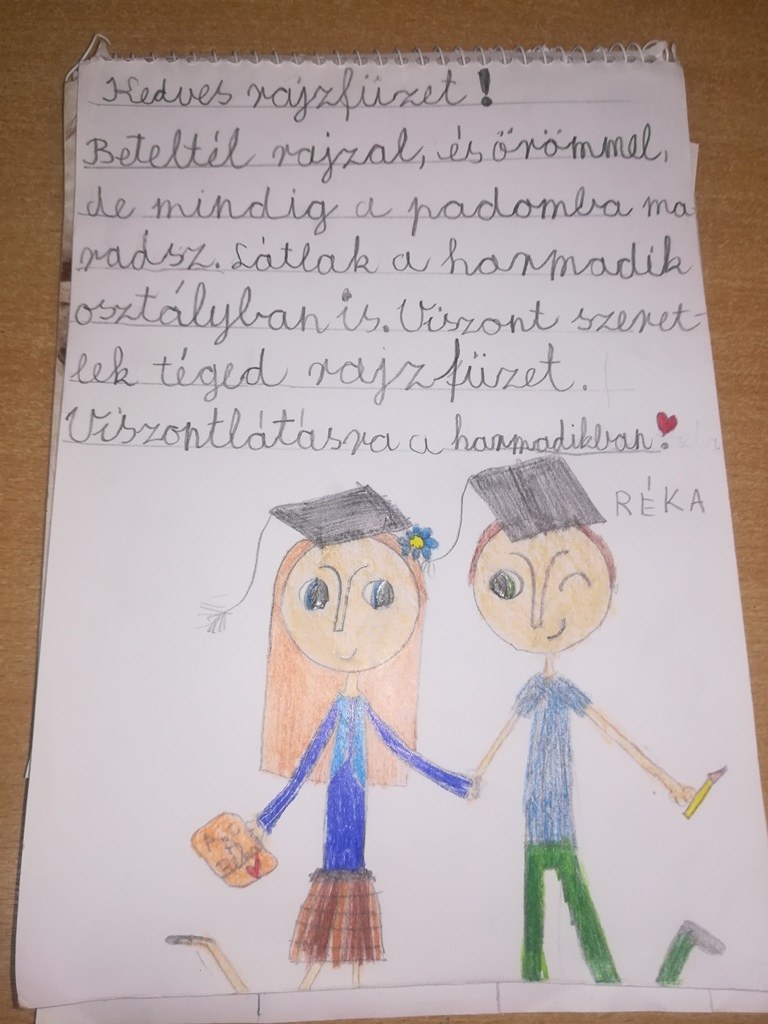 Kedves rajzfüzet!
Beteltél rajzal, és örömmel,
de mindig a padomba ma
radsz. Látlak a harmadik
osztályban is. Viszont szeret-
lek téged rajzfüzet.
Viszontlátásra a harmadikban!
RÉKA